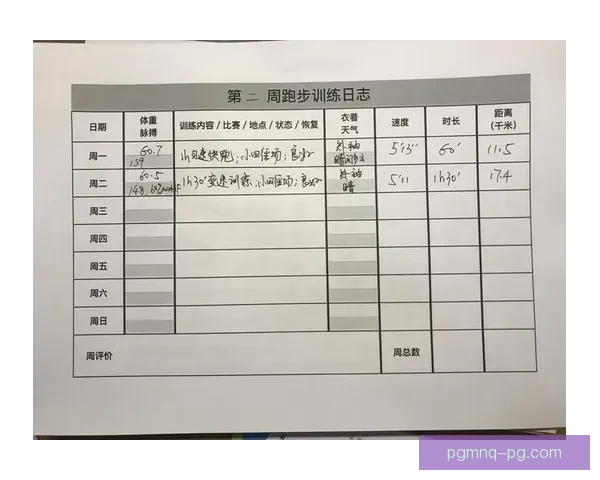 第 二 周跑步训练日志
日期 体重 脉搏 训练内容 / 比赛 / 地点 / 状态 / 恢复 衣着 天气 速度 时长 距离 (千米)
周一 60.7 159 1h 速快跑; 场; 良好 5'13" 60' 11.5
周二 60.5 148 1h30'变速训练; 场; 良好 晴 5'11 1h30' 17.4
周三
周四
周五
周六
周日
周评价 周总数
pgmnq-pg.com